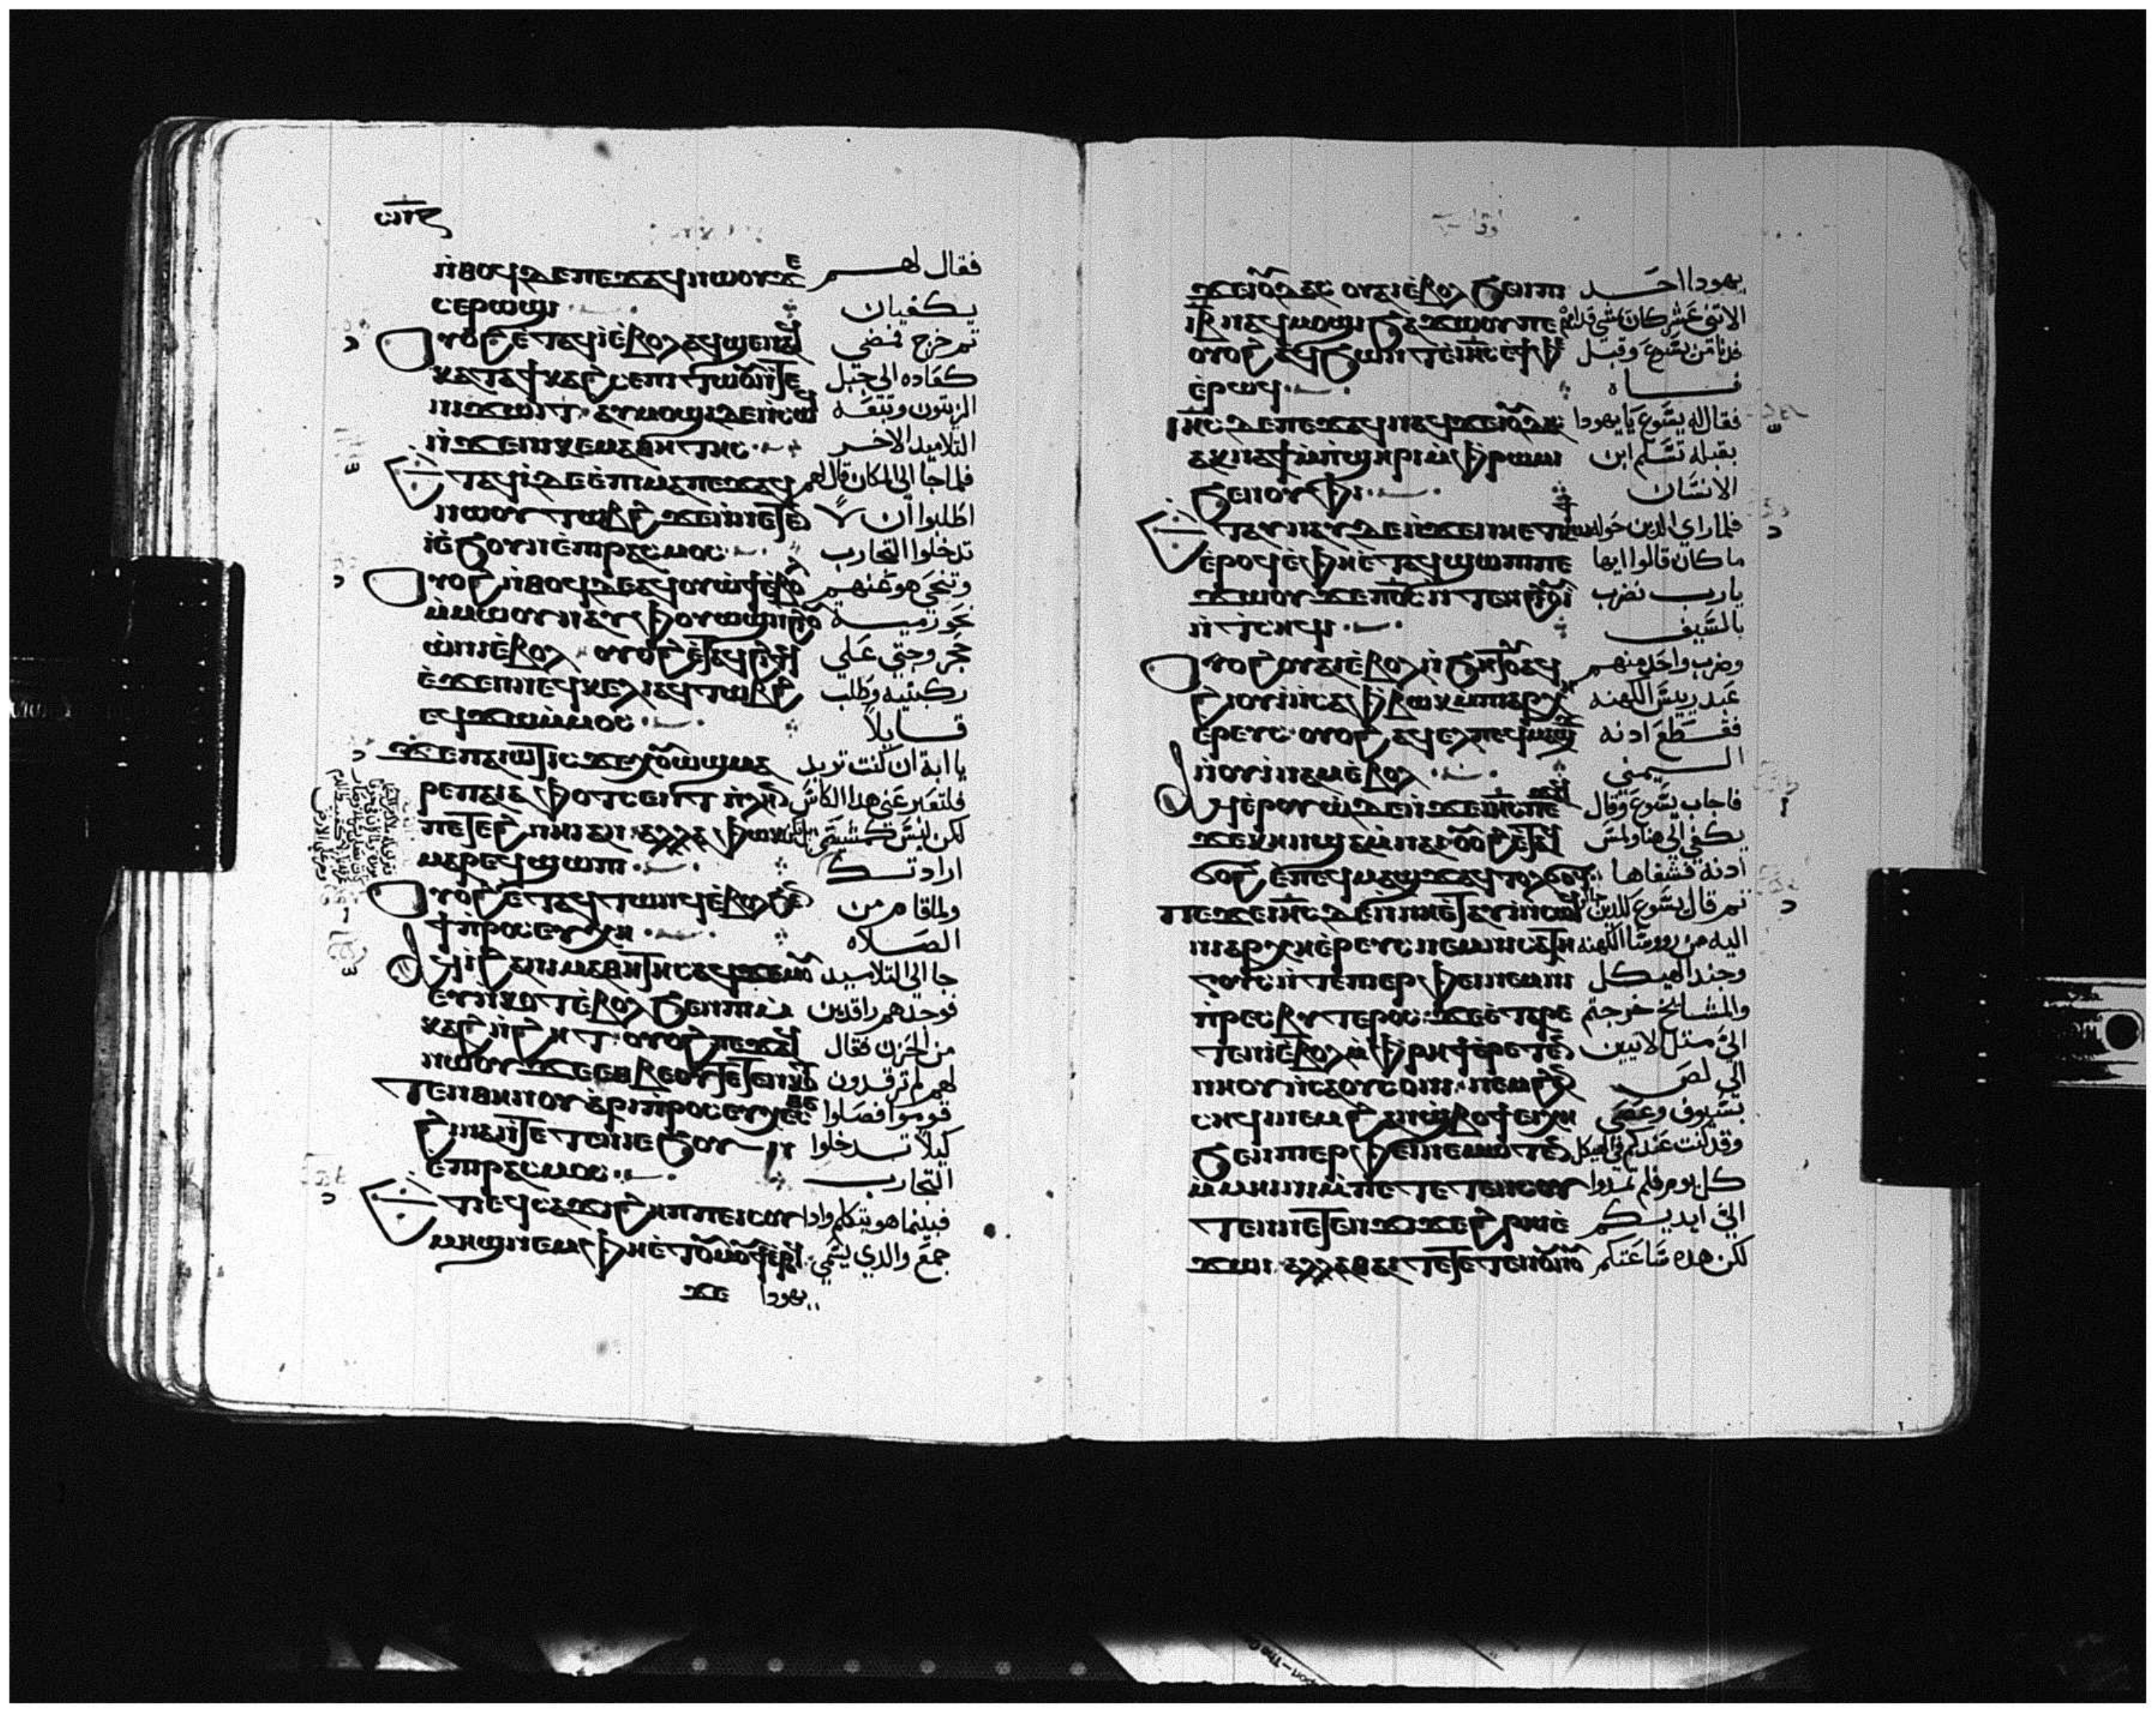 ⲛ̀ⲑⲟϥⲇⲉⲡⲉϫⲁϥⲛⲱⲟⲩϫⲉ فقال لهم
ⲥⲉⲣⲱϣⲓ يكفيان
ⲟⲩⲟϩⲉ̀ⲧⲁϥⲓ̀ⲉ̀ⲃⲟⲗⲁϥϣⲉⲛⲁϥ تم خرج فمضي
ⲕⲁⲧⲁϯⲕⲁϩⲥⲉⲡⲓⲧⲱⲟⲩⲛ̀ⲧⲉ كعاده الي جبل
ⲛⲓϫⲱⲓⲧ ⲁⲩⲙⲟϣⲓⲇⲉⲛ̀ⲥⲱϥ الزيتون وتبعه
ⲛ̀ϫⲉⲛⲓⲕⲉⲙⲁⲑⲏⲧⲏⲥ التلاميد الاخر
ⲉⲧⲁϥⲓ̀ⲇⲉⲉ̀ⲡⲓⲙⲁⲡⲉϫⲁϥ فلما جا الي المكان قال لهم
ⲛⲱⲟⲩⲧⲱⲃϩ ϫⲉⲓⲛⲛⲉⲧⲉⲛ اطلبوا ان لا
ⲓ̀ⲉ̀ϧⲟⲩⲛⲉ̀ⲡⲓⲣⲁⲥⲙⲟⲥ تدخلوا التجارب
ⲟⲩⲟϩ ⲛ̀ⲑⲟϥⲇⲉⲁϥⲟⲩⲱϯⲉ̀ⲃⲟⲗ وتنحي هو عنهم
ⲙ̀ⲙⲱⲟⲩⲛⲁⲩⲫⲟⲩⲱϣⲛ̀ⲟⲩ نحو رمية
ⲱ̀ⲛⲓⲉ̀ⲃⲟⲗ ⲟⲩⲟϩ ⲉ̀ⲧⲁϥϩⲓⲧϥ حجر وجتي علي
ⲉ̀ϫⲉⲛⲛⲉϥⲕⲉⲗⲓⲁϥⲧⲱⲃϩ ركبتيه وطلب
ⲉϥϫⲱⲙ̀ⲙⲟⲥ قايلاً
ϫⲉⲡⲁⲓⲱⲧⲓⲥϫⲉⲭⲟⲩⲱϣⲙⲁ يا ابة ان كنت تريد
ⲣⲉⲡⲁⲓⲁⲫⲟⲧⲥⲉⲛⲧ فلتعبر عني هدا الكاس
ⲡⲉⲧⲉϩⲛⲏⲓⲁⲛ ⲁⲗⲗⲁ ⲫⲱⲕ لكن ليس كمشيتي بل تكن
ⲙⲁⲣⲉϥϣⲱⲡⲓ ارادتك
ⲟⲩⲟϩⲉ̀ⲧⲁϥⲧⲱⲛϥⲉ̀ⲃⲟⲗϧⲉⲛ ولما قام من
ϯⲡⲣⲟⲥⲉⲩⲭⲏ الصلاه
ⲁϥⲓ̀ϩⲁⲛⲓⲙⲁⲑⲏⲧⲏⲥⲁϥϫⲉⲙⲟⲩ جا الي التلاميد
ⲉⲩⲛⲕⲟⲧⲉ̀ⲃⲟⲗ ϧⲉⲛⲡⲓⲙ̀ فوجدهم راقدين
ⲕⲁϩⲛ̀ϩⲏⲧ ⲟⲩⲟϩ ⲡⲉϫⲁϥ من الحزن فقال
ⲛⲱⲟⲩ ϫⲉⲉⲑⲃⲉⲟⲩⲧⲉⲧⲉⲛⲛⲕⲟⲧ لهم لم ترقدون
ⲧⲉⲛⲑⲏⲛⲟⲩⲁⲣⲓⲡⲣⲟⲥⲉⲩⲭⲉⲥⲑⲉ قوموا فصلوا
ϩⲓⲛⲁⲛ̀ⲧⲉⲧⲉⲛⲛⲉϧⲟⲩⲛ كيلا تدخلوا
ⲉⲡⲓⲣⲁⲥⲙⲟⲥ التجارب
ⲉⲧⲓⲉϥⲥⲁϫⲓϩⲏⲡⲡⲉⲓⲥⲟⲩ فبينما هو يتكلم وادا
ⲙⲏϣⲛⲉⲙ ⲫⲏⲉ̀ⲧⲟⲩⲙⲟⲩϯⲉ̀ⲣⲟϥ جمع والدي يسمي
ϫⲉ يهودا
ϫⲉⲓⲟⲩⲇⲁⲥ ⲟⲩⲁⲓⲉ̀ⲃⲟⲗ ϧⲉⲛⲡⲓ يهودا احد
ⲓⲃ ⲛⲁϥⲙⲟϣⲓϧⲁϫⲱⲟⲩⲡⲉ الاتني عشر كان يمشي قدامهم
ⲟⲩⲟϩ ⲁϥϧⲱⲛⲧⲉ̀ⲓⲏⲥⲁϥϯⲫⲓ فدنا من يسوع وقبل
ⲉ̀ⲣⲱϥ فاه
ⲓⲏⲥⲇⲉⲡⲉϫⲁϥⲛⲁϥϫⲉⲓⲟⲩⲇⲁⲥ فقال له يسوع يا يهودا
ⲁⲕⲛⲁϯⲙ̀ⲡϣⲏⲣⲓⲙ̀ⲫⲣⲱⲙⲓ بقبله تسلم ابن
ϧⲉⲛⲟⲩⲫⲓ الانسان
ⲉⲧⲁⲩⲛⲁⲩⲇⲉⲛ̀ϫⲉⲛⲏⲉⲧⲕⲱϯ فلما راي الدين حوله
ⲉ̀ⲣⲟϥⲉ̀ⲫⲏⲉ̀ⲧⲁϥϣⲱⲡⲓⲡⲉ ما كان قالوا ايها
ϫⲱⲟⲩϫⲉⲡϭⲟⲓⲥⲛ̀ⲧⲉⲛϩⲓⲟⲩⲓ̀ يارب نضرب
ⲛ̀ⲧⲥⲏϥⲓ بالسيف
ⲟⲩⲟϩⲟⲩⲁⲓⲉ̀ⲃⲟⲗⲛ̀ϧⲏⲧⲟⲩⲁϥ وضرب واحد منهم
ϩⲓⲟⲩⲓ̀ⲛ̀ⲥⲁⲫⲃⲱⲕⲙ̀ⲡⲓⲁⲣⲭⲏ عبد رييس الكهنه
ⲉ̀ⲣⲉⲩⲥ ⲟⲩⲟϩ ⲁϥⲉⲗⲡⲉϥⲙⲁϣϫ فقطع ادنه
ⲛ̀ⲟⲩⲓ̀ⲛⲁⲙⲉ̀ⲃⲟⲗ اليمني
ⲁϥⲉ̀ⲣⲟⲩⲱ̀ⲇⲉⲛ̀ϫⲉⲓⲏⲥⲡⲉϫⲁϥ فاجاب يسوع وقال
ϫⲉⲕⲏⲛϣⲁⲙ̀ⲛⲁⲓ ⲟⲩⲟϩⲉ̀ⲧⲁϥ يكفي الي هنا ولمس
ϭⲟϩ ⲉ̀ⲡⲉϥⲙⲁϣϫⲁϥⲧⲟⲩϫⲟϥ ادنه فشفاها
ⲡⲉϫⲉⲓⲏⲥⲇⲉⲛ̀ⲛⲏⲉ̀ⲧⲁⲩⲓ̀ⲛ̀ⲥⲱϥ تم قال يسوع للدين جاوا
ⲛⲓⲁⲣⲭⲏⲉ̀ⲣⲉⲩⲥⲛⲉⲙⲛⲓⲥⲁⲧⲏ اليه من رووسا الكهنه
ⲅⲟⲩⲥⲛ̀ⲧⲉⲡⲓⲉⲣⲫⲉⲓⲛⲉⲙⲛⲓ وجند الهيكل
ⲡⲣⲉⲥⲃⲩⲧⲉⲣⲟⲥ ϫⲉⲉ̀ⲧⲁⲣⲉ والمشايخ خرجتم
ⲧⲉⲛⲓ̀ⲉ̀ⲃⲟⲗⲙ̀ⲫⲣⲏϯⲉ̀ⲣⲉⲧⲉⲛ الي مثل لاتيين
ⲛⲏⲟⲩⲛ̀ⲥⲁⲟⲩⲥⲟⲛⲓ ⲛⲉⲙϩⲁⲛ الي لص
ⲥⲏϥⲓⲛⲉⲙϩⲁⲛϣ̀ⲃⲟϯⲉⲓⲭⲏ بسيوف وعصي
ϧⲉⲛⲡⲓⲉⲣⲫⲉⲓⲛⲉⲙⲱⲧⲉⲛ وقد كنت عندكم في الهيكل
ⲙ̀ⲙⲏⲛⲓⲙ̀ⲡⲉⲧⲉⲧⲉⲛⲥⲟⲩ كل يوم فلم تمدوا
ⲧⲉⲛⲛⲉⲧⲉⲛϫⲓϫⲉϩⲣⲏⲓⲉ̀ الي ايديكم
ϫⲱⲓ ⲁⲗⲗⲁⲑⲁⲓⲧⲉⲧⲉⲧⲉⲛⲟⲩⲛⲟⲩ لكن هده ساعتكم